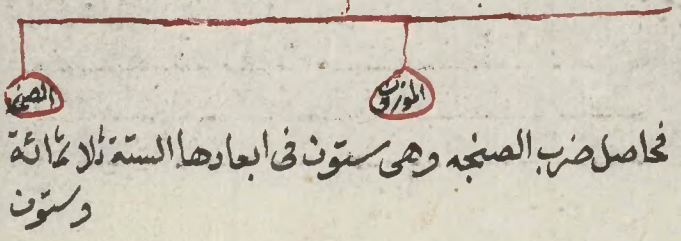 الموزون
الصنجه
فحاصل ضرب الصنجه وهى ستون فى ابعادها الستة ثلاثمائة
وستون